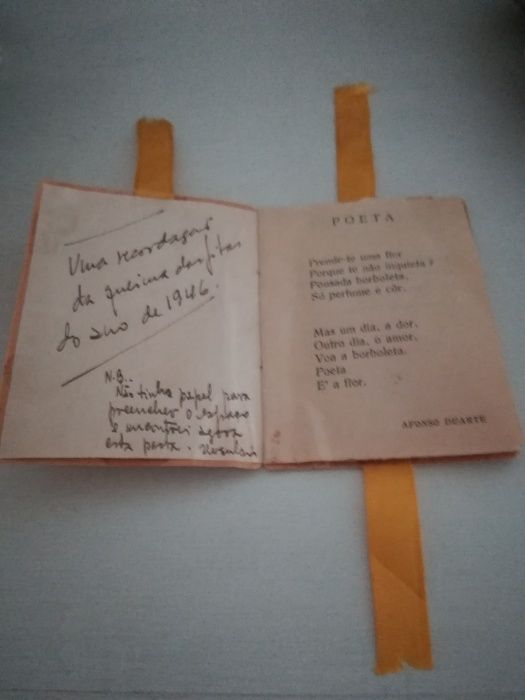 Uma recordação
da queima das fitas
do ano de 1946.
N.B..
Não tinha papel para
preencher o espaço
e encontrei agora
esta pasta.
POETA
Prende-te uma flor
Porque te não inquieta:
Pousada borboleta,
Só perfume e côr.
Mas um dia, a dor,
Outro dia, o amor,
Voa a borboleta.
Poeta
E' a flor.
AFONSO DUARTE